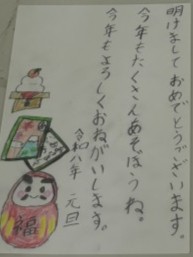 明けましておめでとうございます。
今年もたくさんあそぼうね。
今年もよろしくおねがいします。
令和八年 元旦
福